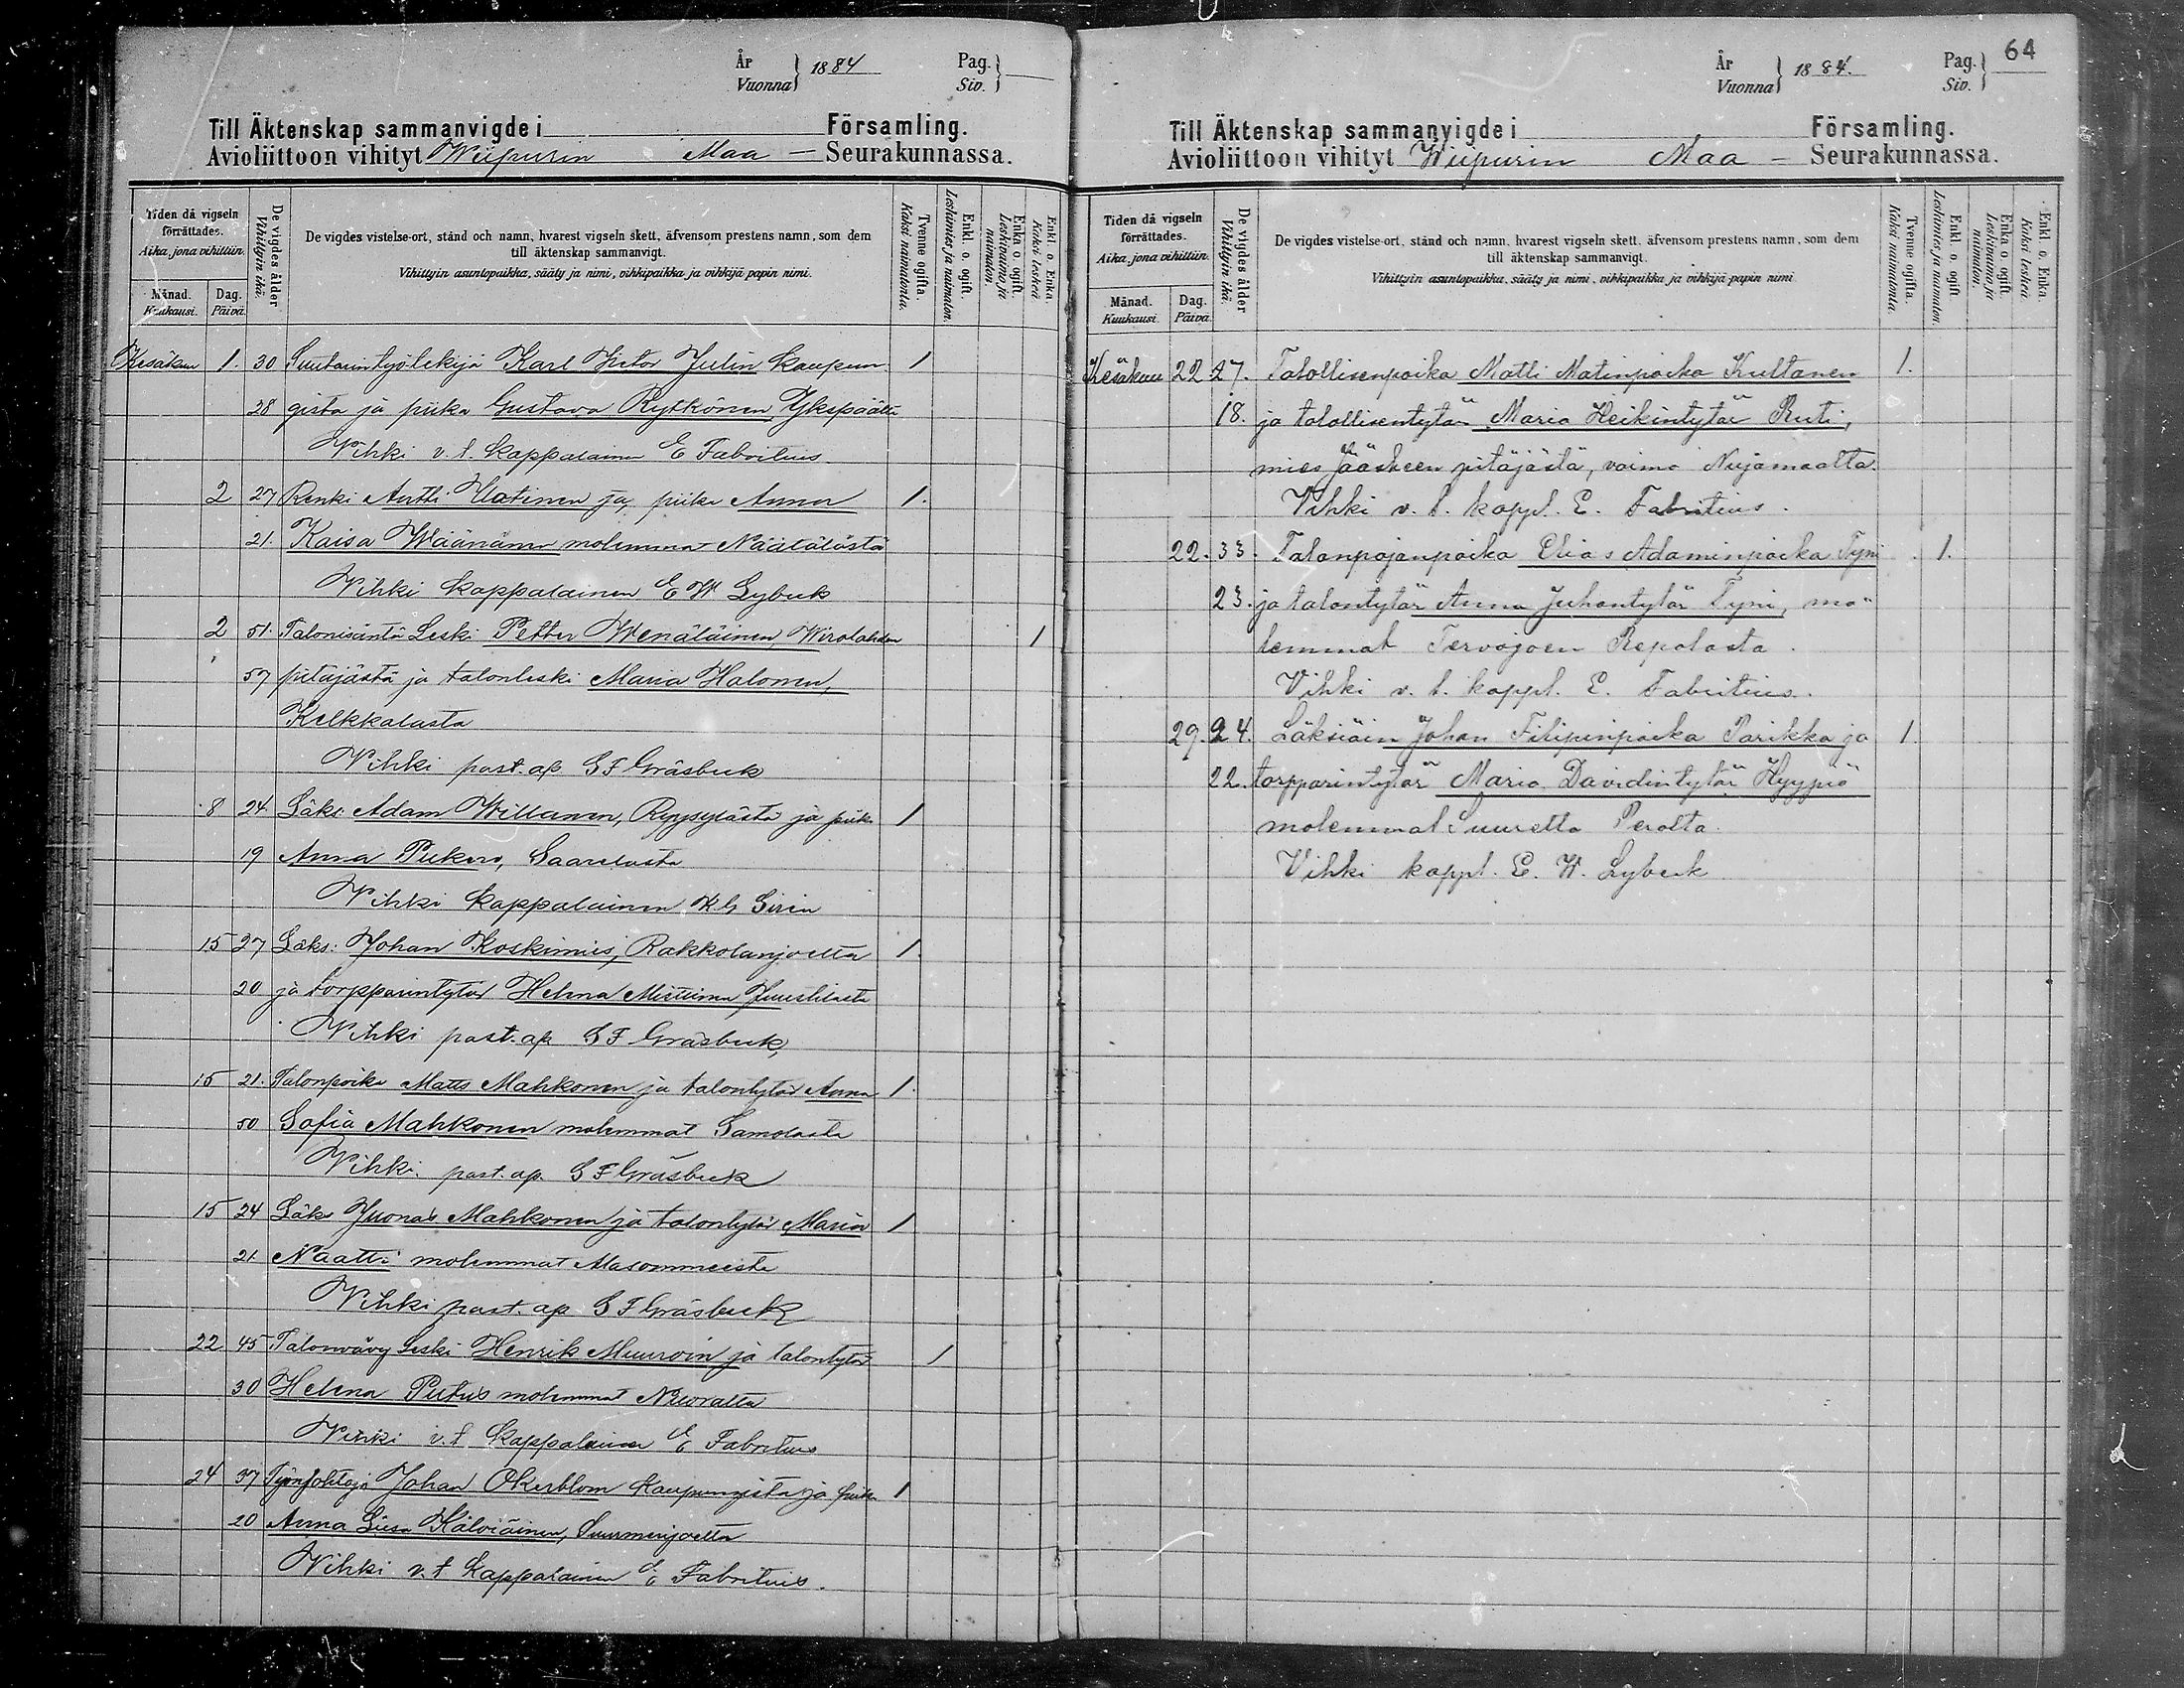 År
Vuonna } 1884 Pag.
Siv. }
Till Äktenskap sammanvigde i Församling.
Avioliittoon vihityt Wiipurin Maa – Seurakunnassa.
Tiden då vigseln förrättades.
Aika, jona vihittiin.
Månad. Kuukausi.
Dag. Päivä.
De vigdes ålder
Vihittyin ikä.
De vigdes vistelse-ort, stånd och namn, hvarest vigseln skett, äfvensom prestens namn, som dem
till äktenskap sammanvigt.
Vihittyin asuntopaikka, sääty ja nimi, vihkipaikka ja vihkijä papin nimi.
Tvenne ogifta.
Kaksi naimatonta.
Enkl. o. ogift.
Leskimies ja naimaton.
Enka o. ogift.
Leskivaimo ja naimaton.
Enkl. o. Enka.
Kaksi leskeä
Kesäkuu 1. 30 Suutarintyötekijä Karl Victor Julin Kaupun 1
28 gista ja piika Gustava Rytkönen Ykspäältä
Vihki v.t. Kappalainen E Fabritius
2 27 Renki Antti Uatinen ja piika Anna 1.
21. Kaisa Wäänänen molemmat Näätälästä
Vihki Kappalainen E W Lybeck
2 51. Talonisäntä Leski Petter Wenäläinen, Wirolahden 1
57 pitäjästä ja talonleski Maria Halonen,
Kelkkalasta
Vihki past. ap. G F Gräsbeck
8 24 Läks: Adam Willanen, Ryypylästä ja piika 1
19 Anna Piekova, Saarelasta
Vihki Kappalainen K G Sirén
15 27 Läks: Johan Koskimies, Rakkolanjoelta 1.
20 ja torpparintytär Helena Juustilasta
Vihki past. ap G F Gräsbeck,
15 21. Talonpoika Matts Mahkonen ja talontytär Anna 1.
50 Sofia Mahkonen molemmat Samolasta
Vihki past. ap. G F Gräsbeck
15 24 Läks Juonas Mahkonen ja talontytär Maria 1
21 Naatti molemmat
Vihki past. ap G F Gräsbeck
22 45 Talonvävy Leski Henrik Muuroin ja talontytär 1
30 Helena Putus molemmat Nuoralta
Vihki v.t Kappalainen E Fabritius
24 37 Työnjohtaja Johan Okerblom Kaupungista ja piika 1
20 Anna Liisa Kälviäinen, Suurmerijoelta
Vihki v.t Kappalainen E Fabritius.
64
År
Vuonna } 1884. Pag.
Siv. }
Till Äktenskap sammanvigde i Församling.
Avioliittoon vihityt Wiipurin Maa – Seurakunnassa.
Tiden då vigseln förrättades.
Aika, jona vihittiin.
Månad. Kuukausi.
Dag. Päivä.
De vigdes ålder
Vihittyin ikä.
De vigdes vistelse-ort, stånd och namn, hvarest vigseln skett, äfvensom prestens namn, som dem
till äktenskap sammanvigt.
Vihittyin asuntopaikka, sääty ja nimi, vihkipaikka ja vihkijä papin nimi
Tvenne ogifta.
Kaksi naimatonta.
Enkl. o. ogift
Leskimies ja naimaton.
Enka o. ogift.
Leskivaimo ja naimaton.
Enkl. o. Enka.
Kaksi leskeä
Kesäkuu 22 27. Talollisenpoika Matti Matinpoika Kultanen 1.
18. ja talollisentytär Maria Heikintytär Ruti,
mies Jääsken pitäjästä, vaimo Nuijamaalta.
Vihki v. t. kappl. E. Fabritius.
22. 33. Talonpojanpoika Elias Adaminpoika Tyni 1.
23. ja talontytär Anna Juhontytär Tyni, mo"
lemmat Tervajoen Repolasta.
Vihki v. t. kappl. E. Fabritius.
29. 24. Läksiäin Johan Filipinpoika Parikka ja 1.
22. torpparintytär Maria Davidintytär Hyypiö
molemmat Suurelta Perolta.
Vihki kappl. E. W. Lybeck